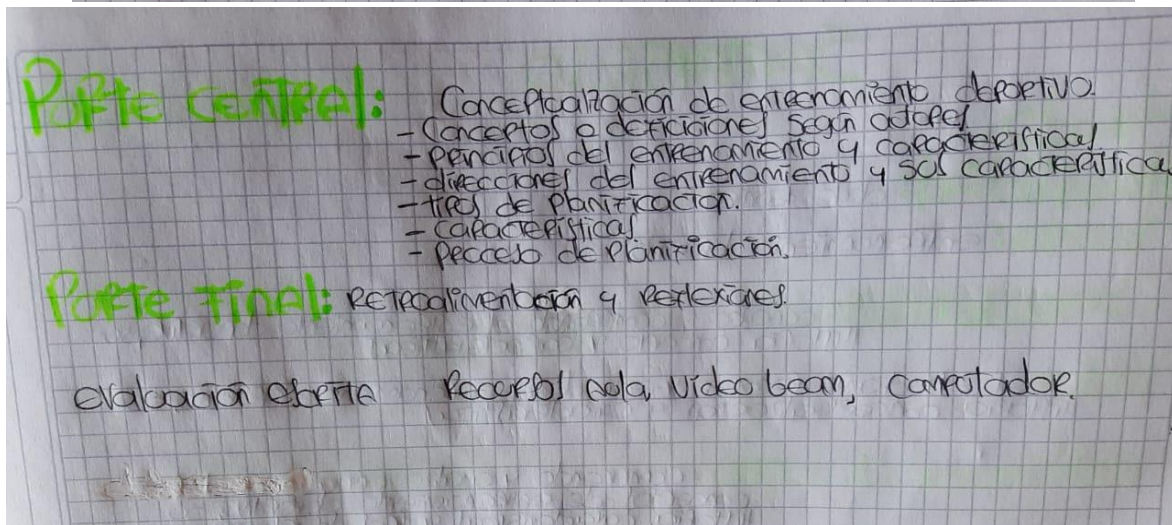 Parte central: Conceptualización de entrenamiento deportivo.
- Conceptos o deficiciones según autores
- principios del entrenamiento y características
- direcciones del entrenamiento y sus características
- tipos de planificación.
- características
- proceso de planificación.
Parte final: Retroalimentación y Reflexiones.
evaluación escrita Recursos aula, video beam, computador.